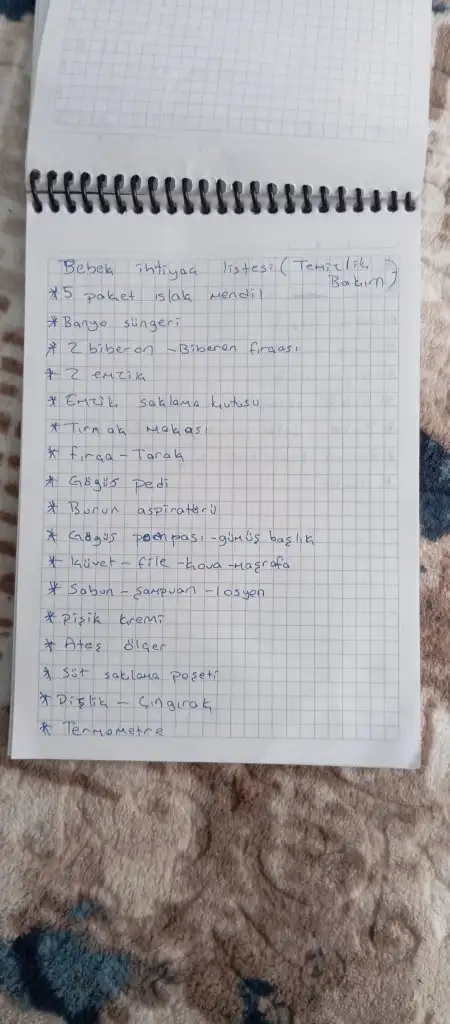 Bebek ihtiyaç listesi (Temizlik
Bakım)
*5 paket ıslak mendil
*Banyo süngeri
* 2 biberon - Biberon fırçası
* 2 emzik
* Emzik saklama kutusu
* Tırnak makası
* fırça - Tarak
* Göğüs pedi
* Burun aspiratörü
* Göğüs pompası - gümüş başlık
* küvet - file - kova - maşrafa
* Sabun - şampuan - losyon
* pişik kremi
* Ateş ölçer
* Süt saklama poşeti
* Dişlik - Çıngırak
* Termometre